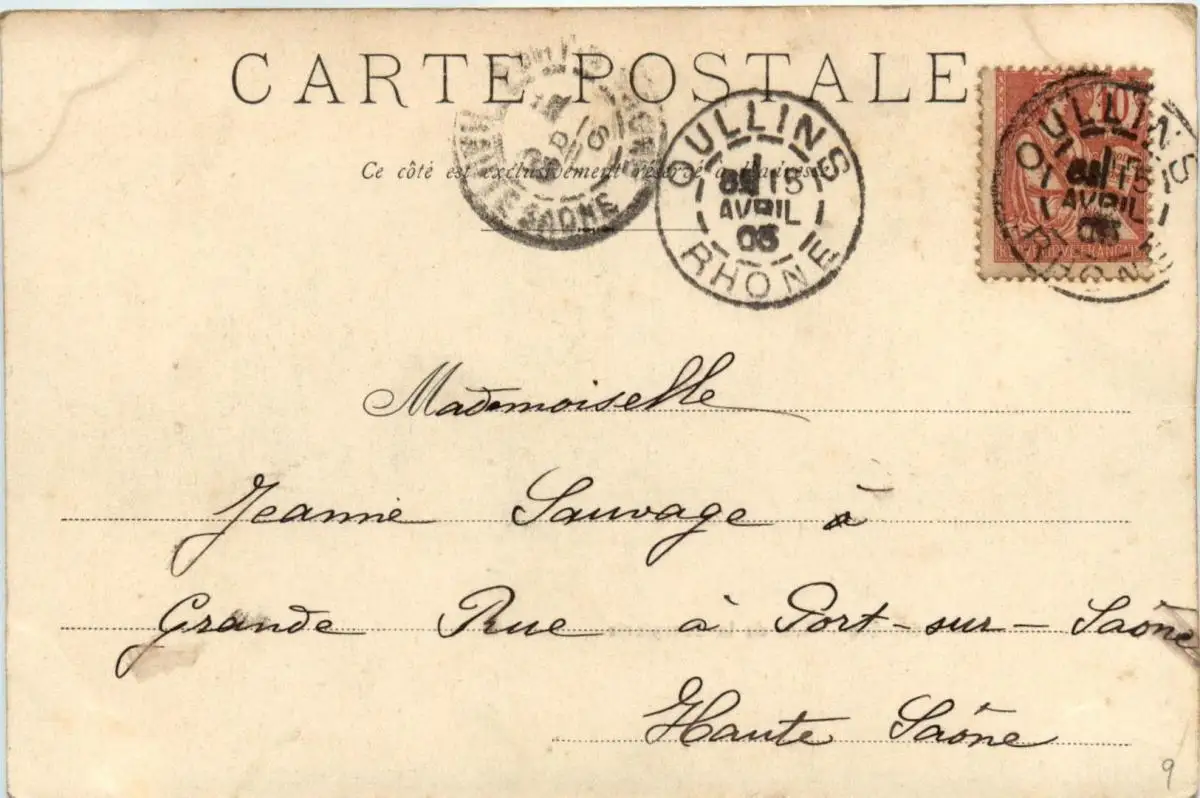 CARTE POSTALE
Ce côté est exclusivement réservé à l'adresse
HAUTE SAONE
OULLINS
15
AVRIL
03
RHONE
10
OULLINS
15
AVRIL
RHONE
Mademoiselle
Jeanne Sauvage à
Grande Rue à Port-sur-Saône
Haute Saône
9